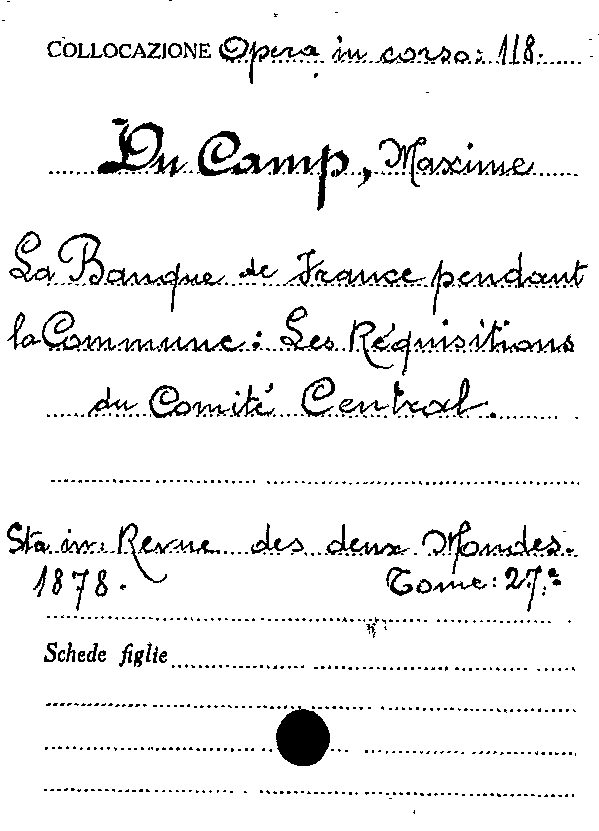 COLLOCAZIONE Opera in corso: 118.
Du Camp, Maxime
La Banque de France pendant
la Commune: Les Réquisitions
du Comité Central.
Sta in: Revue des deux Mondes.
1878. Tome: 27.º
Schede figlie